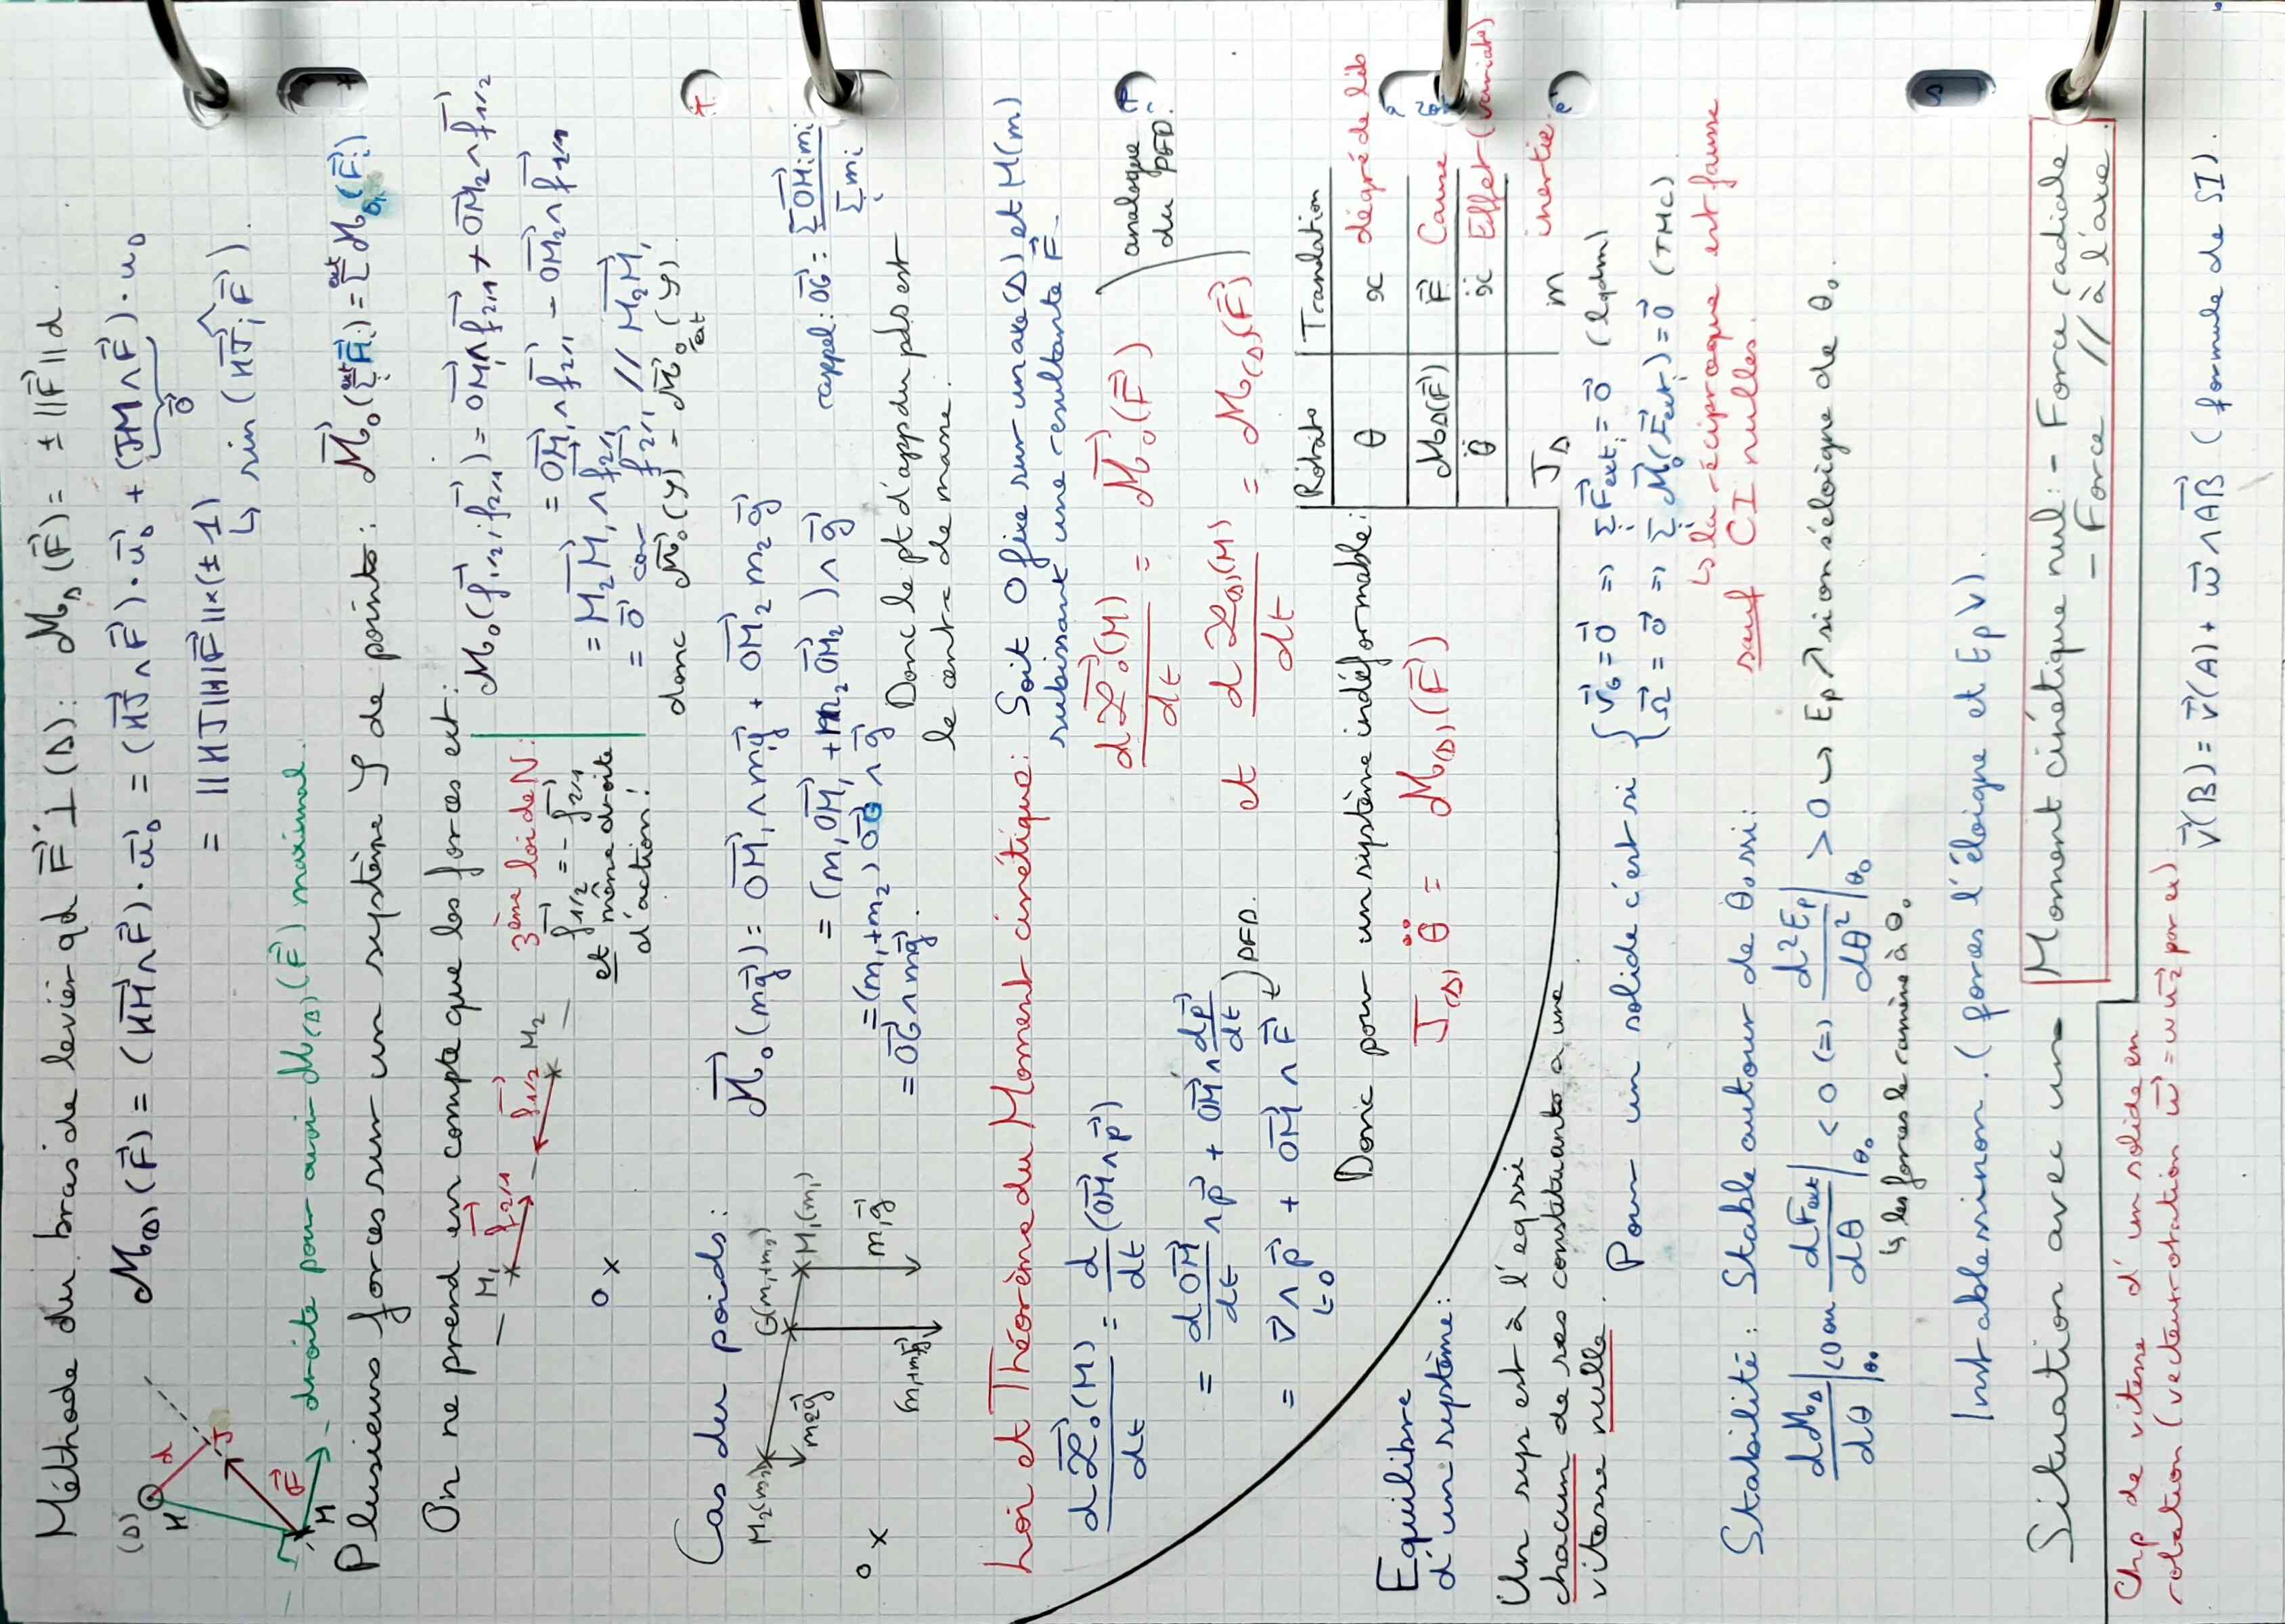 Méthode du bras de levier qd F⃗ ⊥ (Δ) : M_Δ(F⃗) = ± ||F⃗|| d.
(Δ) H d J F⃗ M
M_(Δ)(F⃗) = (HM⃗ ∧ F⃗) · u⃗_Δ = (HJ⃗ ∧ F⃗) · u⃗_Δ + (JM⃗ ∧ F⃗) · u_Δ
0⃗
= ||HJ|| ||F⃗|| × (± 1)
↳ sin (HJ⃗ ; F⃗).
droite pour avoir M_(Δ)(F⃗) maximal.
Plusieurs forces sur un système 𝒮 de points : M⃗_O(Σ^ext F⃗i) = Σ^ext M_O(F⃗i)
On ne prend en compte que les forces ext :
M_O(f⃗1/2 ; f⃗2/1) = OM⃗1 ∧ f⃗2/1 + OM⃗2 ∧ f⃗1/2
M1 f⃗2/1 f⃗1/2 M2
3ème loi de N :
f⃗1/2 = - f⃗2/1
et même droite
d'action !
= OM⃗1 ∧ f⃗2/1 - OM⃗2 ∧ f⃗2/1
= M2M⃗1 ∧ f⃗2/1
= 0⃗ car f⃗2/1 // M2M⃗1
O ×
donc M⃗_O(𝒮) = M⃗_O ext(𝒮).
Cas du poids :
M⃗_O(mg⃗) = OM⃗1 ∧ m1g⃗ + OM⃗2 m2g⃗
rappel : OG⃗ = Σ OM⃗i mi / Σ mi
M2(m2) G(m1+m2) M1(m1)
= (m1 OM⃗1 + m2 OM⃗2) ∧ g⃗
m2g⃗ m1g⃗
= (m1+m2) OG⃗ ∧ g⃗
O × (m1+m2)g⃗
= OG⃗ ∧ mg⃗.
Donc le pt d'app du pds est
le centre de masse.
Loi et Théorème du Moment cinétique : Soit O fixe sur un axe (Δ) et M(m)
subissant une resultante F⃗.
dℒ⃗_O(M)/dt = d/dt (OM⃗ ∧ p⃗)
dℒ⃗_O(M)/dt = M⃗_O(F⃗)
analogue
du PFD.
= dOM⃗/dt ∧ p⃗ + OM⃗ ∧ dp⃗/dt
et dℒ_(Δ)(M)/dt = M_(Δ)(F⃗)
PFD.
= v⃗ ∧ p⃗ + OM⃗ ∧ F⃗
↳ 0
Donc pour un système indéformable :
J_(Δ) θ̈ = M_(Δ)(F⃗)
Rotato | Translation
θ | x dégré de lib
M_Δ(F⃗) | F⃗ Cause
θ̈ | ẍ Effet (variato)
J_Δ m inertie.
Equilibre
d'un système :
Un sys est à l'eq ssi
chacun de ses constituants a une
vitesse nulle.
Pour un solide c'est si { v⃗_G = 0⃗ => Σ F⃗ext = 0⃗ (lqdm)
Ω⃗ = 0⃗ => Σ M⃗_O(F⃗ext) = 0⃗ (TMC)
↳ la réciproque est fausse
sauf CI nulles.
Stabilité : Stable autour de θ0 si :
dM_Δ/dθ |θ0 < 0 ou dFext/dθ |θ0 < 0 (=) d²Ep/dθ² |θ0 > 0 ↪ Ep ↗ si on s'éloigne de θ0.
↳ les forces le ramène à θ0
Instable sinon. (forces l'éloigne et Ep ↘).
Situation avec un Moment cinétique nul : - Force radiale
- Force // à l'axe.
Chp de vitesse d'un solide en
rotation (vecteur rotation ω⃗ = ωu⃗z par ex)
v⃗(B) = v⃗(A) + ω⃗ ∧ AB⃗ (formule de SI).